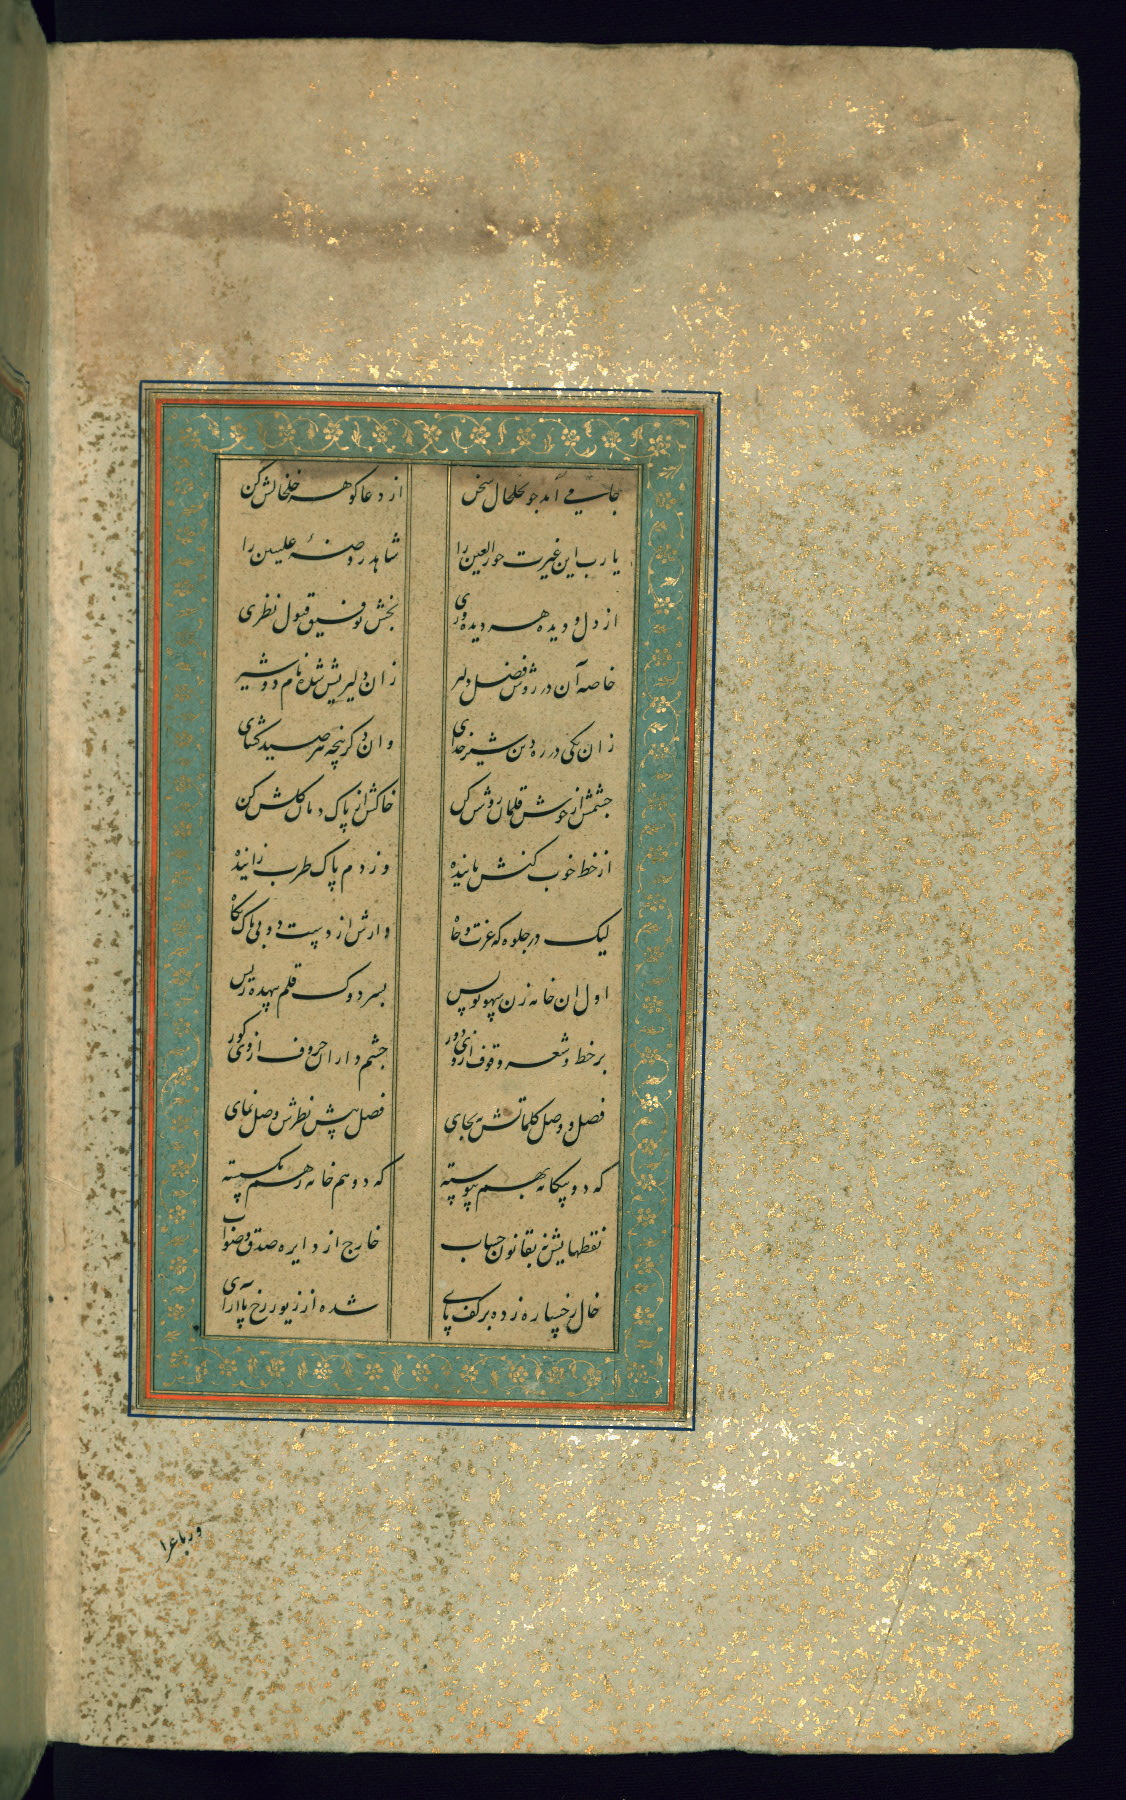 جامی آمد چو خلخال سخن از دعا گوهر خلخالش کن
یا رب این غیرت حور العین را شاهد روضهٔ علیین را
از دل و دیده هر دیده‌وری بخش توفیق قبول نظری
خاصه آن در روش فضل دلیر زان دلیریش شده نام دو شیر
زان یکی در ره دین شیر خدای وان دگر پنجه هر صید گشای
چشمش از خوش قلمان روشن کن خاکش از پاک دمان گلشن کن
از خط خوب کنش پاینده وز دم پاک طرب زاینده
لیک در جلوه گه عزت و جاه دارش از دست دو بی باک نگاه
اول آن خامه زن سهو نویس بسر دوک قلم بیهده ریس
بر خط و شعر وقوف از وی دور چشم داران حروف از وی کور
فصل و وصل کلماتش نه بجای فصل پیش نظرش وصل نمای
که دو بیگانه بهم پیوسته که دو همخانه ز هم بگسسته
نقطهایش نه بقانون حساب خارج از دایره صدق و صواب
خال رخساره زده بر کف پای شده از زیور رخ پا آرای
ور باعرا